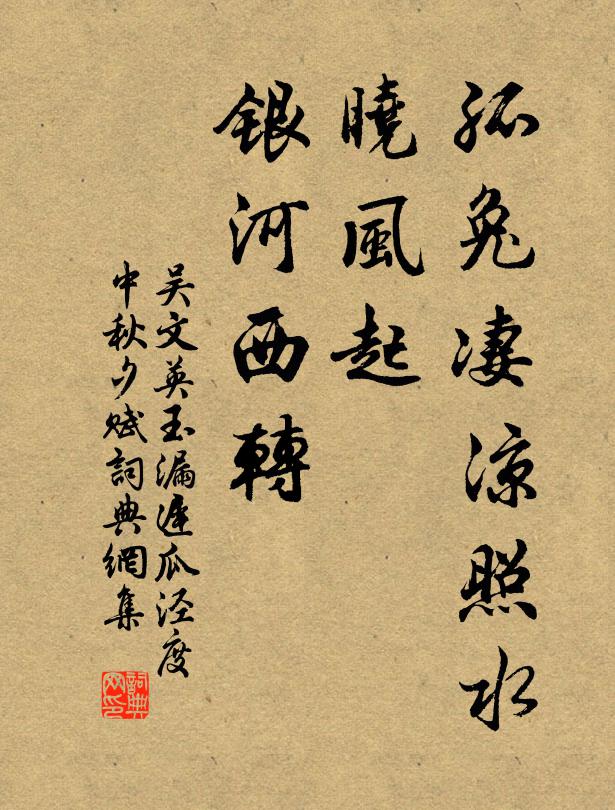 孤兔凄涼照水
曉風起
銀河西轉
吴文英玉漏遲瓜泾度
中秋夕賦詞典網集
詞典
网印